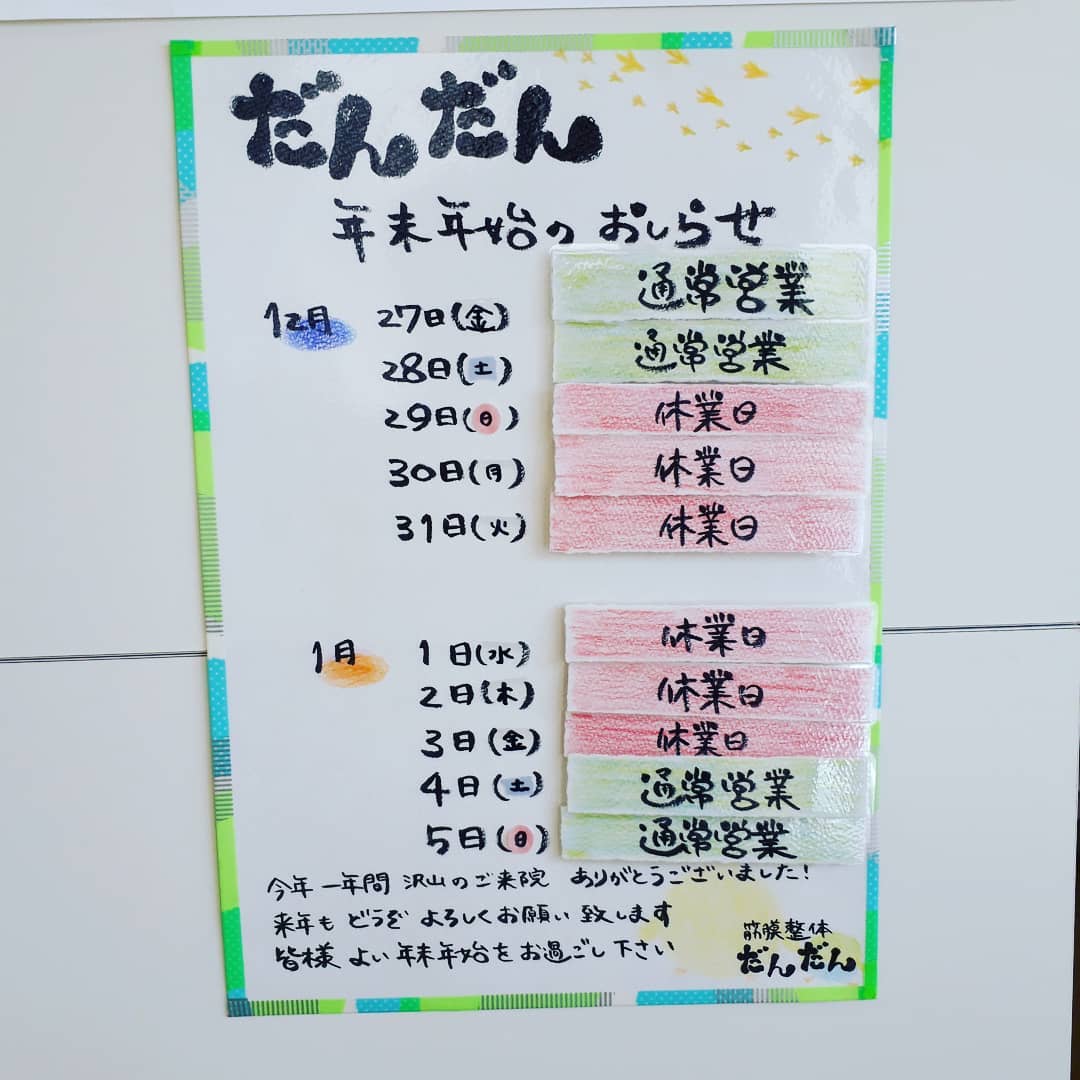 だんだん
年末年始のおしらせ
12月 27日(金) 通常営業
28日(土) 通常営業
29日(日) 休業日
30日(月) 休業日
31日(火) 休業日
1月 1日(水) 休業日
2日(木) 休業日
3日(金) 休業日
4日(土) 通常営業
5日(日) 通常営業
今年一年間 沢山のご来院 ありがとうございました!
来年も どうぞ よろしくお願い致します
皆様 よい年末年始をお過ごし下さい
筋膜整体
だんだん